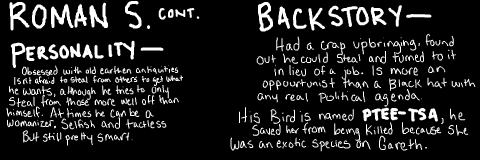 ROMAN S. CONT.
PERSONALITY—
Obsessed with old earthen antiquities
Isn't afraid to steal from others to get what
he wants, although he tries to only
Steal from those more well off than
himself. At times he can be a
Womanizer, Selfish and tactless
But still pretty smart.
BACKSTORY—
Had a crap upbringing, found
out he could steal and turned to it
in lieu of a job. Is more an
oppourtunist than a Black hat with
any real political agenda.
His Bird is named PTEE-TSA, he
Saved her from being killed because She
was an exotic species on Gareth.